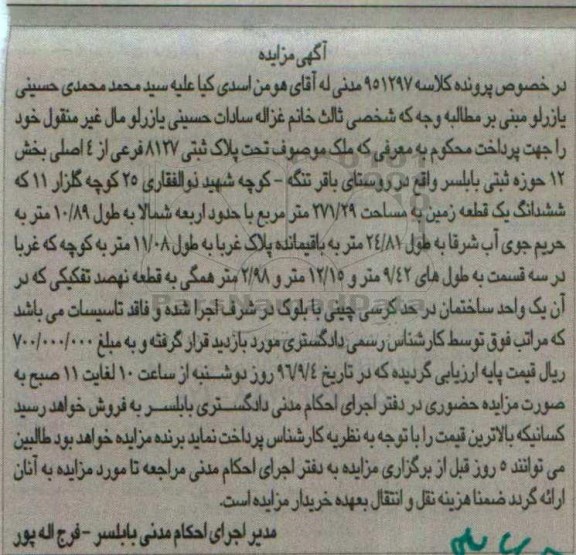 آگهی مزایده
در خصوص پرونده کلاسه ۹۵۱۲۹۷ مدنی له آقای هومن اسدی کیا علیه سید محمد محمدی حسینی
یازرلو مبنی بر مطالبه وجه که شخصی ثالث خانم غزاله سادات حسینی یازرلو مال غیر منقول خود
را جهت پرداخت محکوم به معرفی که ملک موصوف تحت پلاک ثبتی ۸۱۲۷ فرعی از ٤ اصلی بخش
۱۲ حوزه ثبتی بابلسر واقع در روستای باقر تنگه - کوچه شهید ذوالفقاری ۲۵ کوچه گلزار ۱۱ که
ششدانگ یک قطعه زمین به مساحت ۲۷۱/۲۹ متر مربع با حدود اربعه شمالا به طول ۱۰/۸۹ متر به
حریم جوی آب شرقا به طول ۲٤/۸۱ متر به باقیمانده پلاک غربا به طول ۱۱/۰۸ متر به کوچه که غربا
در سه قسمت به طول های ۹/٤۲ متر و ۱۲/۱۵ متر و ۲/۹۸ متر همگی به قطعه نهصد تفکیکی که در
آن یک واحد ساختمان در حد کرسی چینی با بلوک در شرف اجرا شده و فاقد تاسیسات می باشد
که مراتب فوق توسط کارشناس رسمی دادگستری مورد بازدید قرار گرفته و به مبلغ ۷۰۰/۰۰۰/۰۰۰
ریال قیمت پایه ارزیابی گردیده که در تاریخ ۹۶/۹/٤ روز دوشنبه از ساعت ۱۰ لغایت ۱۱ صبح به
صورت مزایده حضوری در دفتر اجرای احکام مدنی دادگستری بابلسر به فروش خواهد رسید
کسانیکه بالاترین قیمت را با توجه به نظریه کارشناس پرداخت نماید برنده مزایده خواهد بود طالبین
می توانند ۵ روز قبل از برگزاری مزایده به دفتر اجرای احکام مدنی مراجعه تا مورد مزایده به آنان
ارائه گردد ضمنا هزینه نقل و انتقال بعهده خریدار مزایده است.
مدیر اجرای احکام مدنی بابلسر - فرج اله پور
ParsNamadData